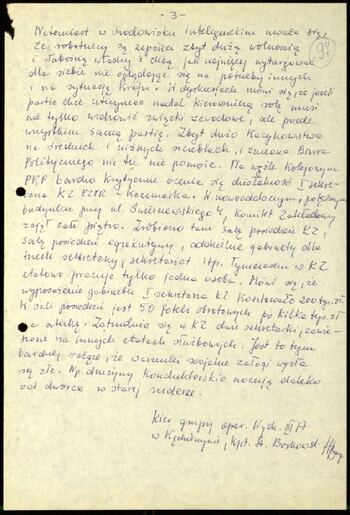 - 3 -
94
Natomiast w środowisku inteligenckim uważa się,
że robotnicy są zepsuci zbyt dużą wolnością
i słabością władzy i chcą jak najwięcej wytargować
dla siebie nie oglądając się na potrzeby innych
i na sytuację kraju. W dyskusjach mówi się, że jeśli
partia chce utrzymać nadal kierowniczą rolę musi
nie tylko uzdrowić związki zawodowe, ale przede
wszystkim samą partię. Zbyt dużo kacykowstwa
na średnich i niższych szczeblach, i zmiana Biura
Politycznego nic tu nie pomoże. Na węźle kolejowym
PKP bardzo krytycznie ocenia się działalność I sekre-
tarza KZ PZPR - Kaczmarka. W nowooddanym, pięknym
budynku przy ul. Świerczewskiego 4, Komitet Zakładowy
zajął całe piętro. Zrobiono tam salę posiedzeń KZ i
salę posiedzeń egzekutywy, oddzielne gabinety dla
trzech sekretarzy, sekretariat itp. Tymczasem w KZ
etatowo pracuje tylko jedna osoba. Mówi się, że
wyposażenie gabinetu I sekretarza KZ kosztowało 200 tys. zł
W sali posiedzeń jest 50 foteli obrotowych po kilka tys. zł
za sztukę. Zatrudnia się w KZ dwie sekretarki,
na innych etatach służbowych. Jest to tym
bardziej rażące, że warunki socjalne załogi węzła
są złe. Np. drużyny konduktorskie nocują daleko
od dworca w starej ruderze.
Kier grupy oper. Wydz. III A
w Kędzierzynie, kpt. A. Borkowski